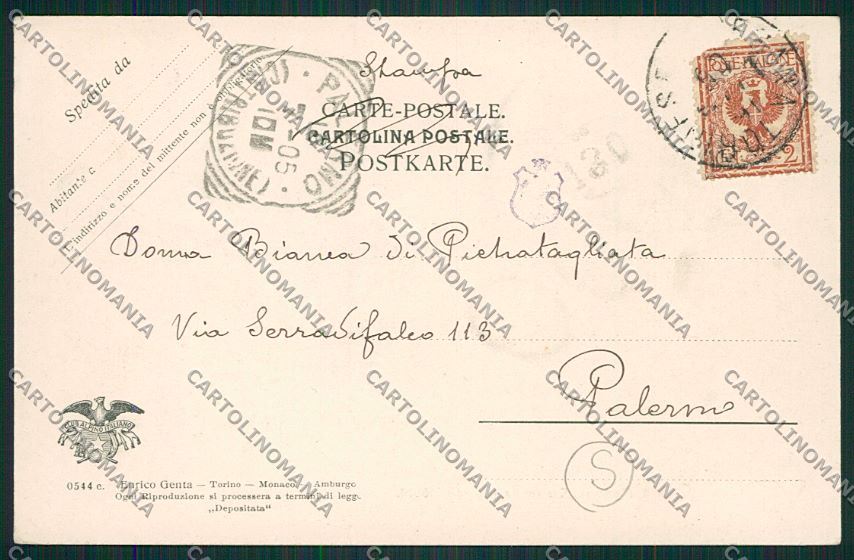 Spedita da
Abitante a
L'indirizzo e nome del mittente non è obbligatorio.
Stampa
CARTE-POSTALE.
CARTOLINA POSTALE.
POSTKARTE.
PALERMO
05
POSTE ITALIANE
2
TORINO
Donna Bianca di Pietratagliata
Via Serradifalco 113
Palermo
S
CLUB ALPINO ITALIANO
0544 c. Enrico Genta — Torino — Monaco — Amburgo
Ogni Riproduzione si processera a termini di legge.
„Depositata"
CARTOLINOMANIA